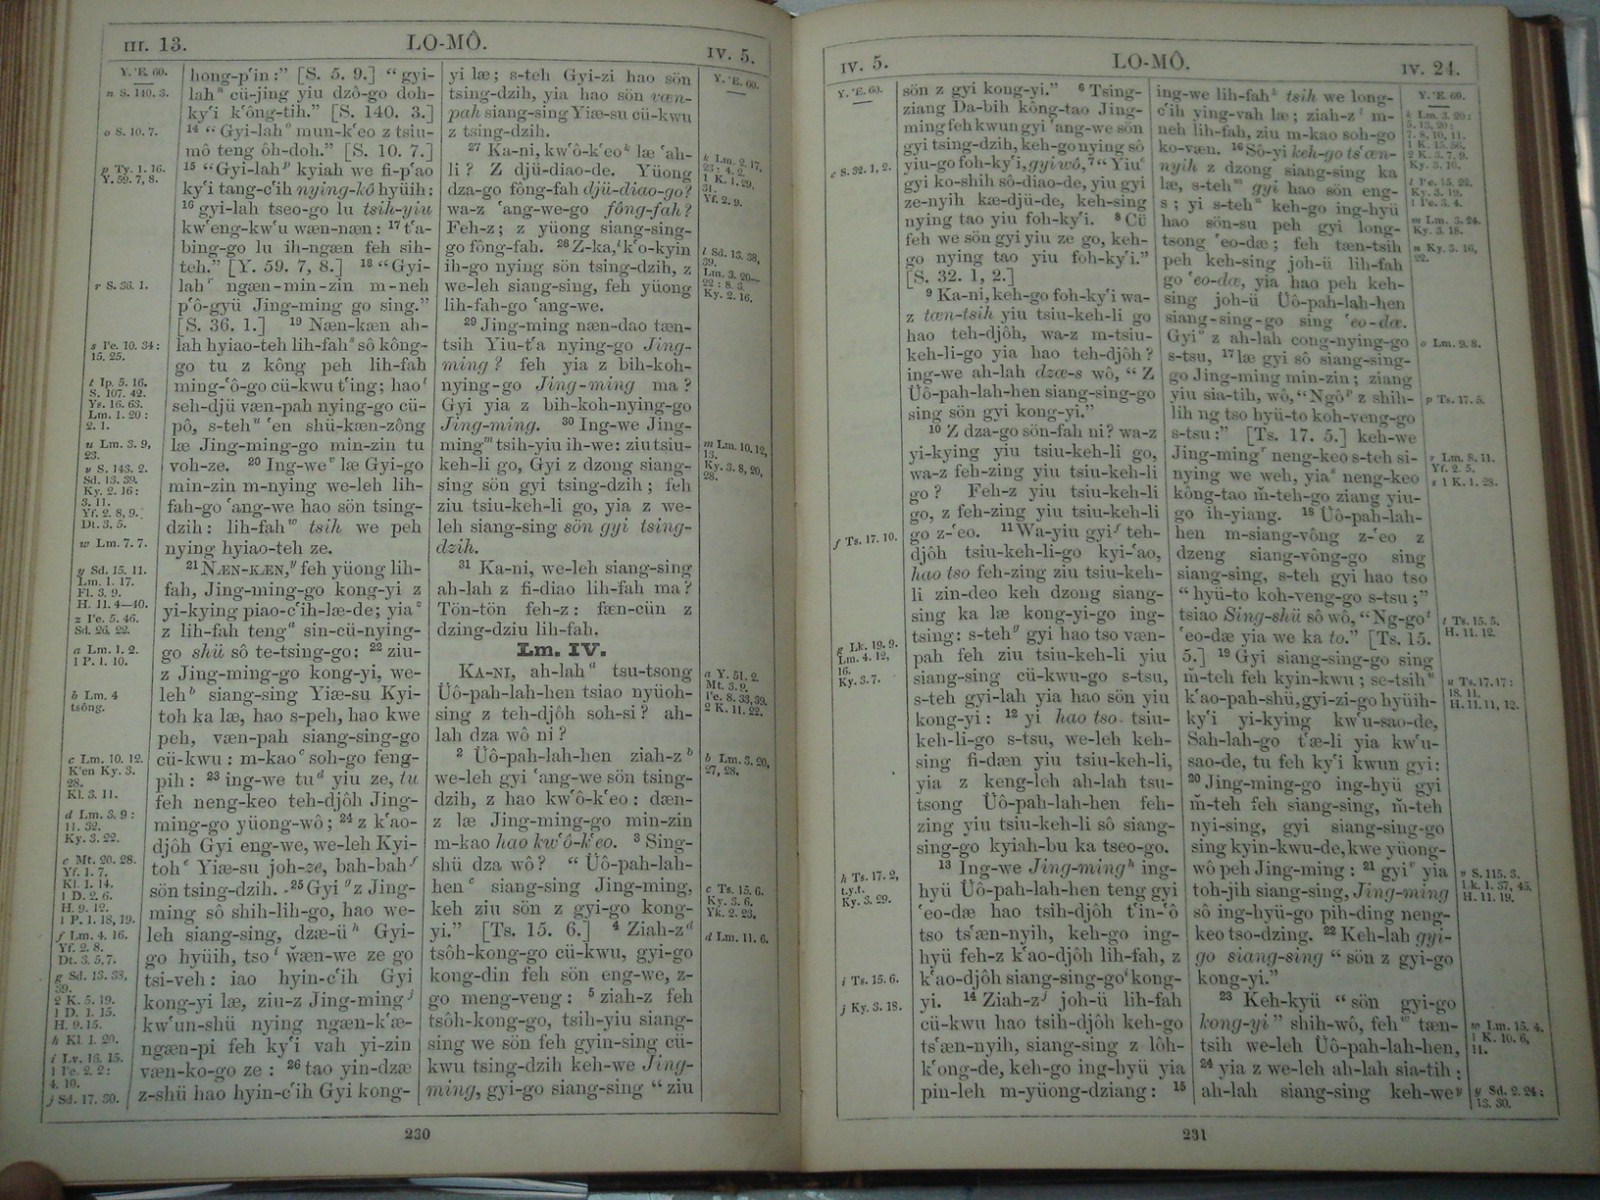 III. 13.
LO-MÔ.
IV. 5.
Y. ‛E. 60.
n S. 140. 3.
o S. 10. 7.
p Ty. 1. 16.
Y. 59. 7, 8.
r S. 36. 1.
s Pe. 10. 34:
15. 25.
t Ip. 5. 16.
S. 107. 42.
Ys. 16. 63.
Lm. 1. 20:
2. 1.
u Lm. 3. 9,
23.
v S. 143. 2.
Sd. 13. 39.
Ky. 2. 16:
3. 11.
Yf. 2. 8, 9.
Dt. 3. 5.
w Lm. 7. 7.
y Sd. 15. 11.
Lm. 1. 17.
Fl. 3. 9.
H. 11. 4—40.
z Pe. 5. 46.
Sd. 26. 22.
a Lm. 1. 2.
1 P. 1. 10.
b Lm. 4
tsông.
c Lm. 10. 12.
K'en Ky. 3.
28.
Kl. 3. 11.
d Lm. 3. 9:
11. 32.
Ky. 3. 22.
e Mt. 20. 28.
Yf. 1. 7.
Kl. 1. 14.
1 D. 2. 6.
H. 9. 12.
1 P. 1. 18, 19.
f Lm. 4. 16.
Yf. 2. 8.
Dt. 3. 5, 7.
g Sd. 13. 38,
39.
2 K. 5. 19.
1 D. 1. 15.
H. 9. 15.
h Kl. 1. 20.
i Lv. 16. 15.
1 Pe. 2. 2:
4. 10.
j Sd. 17. 30.
hong-p‛in:” [S. 5. 9.] “gyi-
lahⁿ cü-jing yiu dzô-go doh-
ky‛i k‛ông-tih.” [S. 140. 3.]
14 “Gyi-lahᵒ mun-k‛eo z tsiu-
mô teng ôh-doh.” [S. 10. 7.]
15 “Gyi-lahᵖ kyiah we fi-p‛ao
ky‛i tang-c‛ih nying-kô hyüih:
16 gyi-lah tseo-go lu tsih-yiu
kw‛eng-kw‛u wæn-næn: 17 t‛a-
bing-go lu ih-ngæn feh sih-
teh.” [Y. 59. 7, 8.] 18 “Gyi-
lahʳ ngæn-min-zin m-neh
p‛ô-gyü Jing-ming go sing.”
[S. 36. 1.] 19 Næn-kæn ah-
lah hyiao-teh lih-fahˢ sô kông-
go tu z kông peh lih-fah
ming-‛ô-go cü-kwu t‛ing; haoᵗ
seh-djü væn-pah nying-go cü-
pô, s-tehᵘ ‛en shü-kæn-zông
læ Jing-ming-go min-zin tu
voh-ze. 20 Ing-weᵛ læ Gyi-go
min-zin m-nying we-leh lih-
fah-go ‛ang-we hao sön tsing-
dzih: lih-fahʷ tsih we peh
nying hyiao-teh ze.
21 NÆN-KÆN,ʸ feh yüong lih-
fah, Jing-ming-go kong-yi z
yi-kying piao-c‛ih-læ-de; yiaᶻ
z lih-fah tengᵃ sin-cü-nying-
go shü sô te-tsing-go; 22 ziu-
z Jing-ming-go kong-yi, we-
lehᵇ siang-sing Yiæ-su Kyi-
toh ka læ, hao s-peh, hao kwe
peh, væn-pah siang-sing-go
cü-kwu: m-kaoᶜ soh-go feng-
pih: 23 ing-we tuᵈ yiu ze, tu
feh neng-keo teh-djôh Jing-
ming-go yüong-wô; 24 z k‛ao-
djôh Gyi eng-we, we-leh Kyi-
tohᵉ Yiæ-su joh-ze, bah-bahᶠ
sön tsing-dzih. 25 Gyiᵍ z Jing-
ming sô shih-lih-go, hao we-
leh siang-sing, dzæ-üʰ Gyi-
go hyüih, tsoⁱ wæn-we ze go
tsi-veh: iao hyin-c‛ih Gyi
kong-yi læ, ziu-z Jing-mingʲ
kw‛un-shü nying ngæn-k‛æ-
ngæn-pi feh ky‛i vah yi-zin
væn-ko-go ze: 26 tao yin-dzæ
z-shü hao hyin-c‛ih Gyi kong-
yi læ; s-teh Gyi-zi hao sön
tsing-dzih, yia hao sön væn-
pah siang-sing Yiæ-su cü-kwu
z tsing-dzih.
27 Ka-ni, kw‛ô-k‛eoᵏ læ ‛ah-
li? Z djü-diao-de. Yüong
dza-go fông-fah djü-diao-go?
wa-z ‛ang-we-go fông-fah?
Feh-z; z yüong siang-sing-
go fông-fah. 28 Z-ka,ˡ k‛o-kyin
ih-go nying sön tsing-dzih, z
we-leh siang-sing, feh yüong
lih-fah-go ‛ang-we.
29 Jing-ming næn-dao tæn-
tsih Yiu-t‛a nying-go Jing-
ming? feh yia z bih-koh-
nying-go Jing-ming ma?
Gyi yia z bih-koh-nying-go
Jing-ming. 30 Ing-we Jing-
mingᵐ tsih-yiu ih-we: ziu tsiu-
keh-li go, Gyi z dzong siang-
sing sön gyi tsing-dzih; feh
ziu tsiu-keh-li go, yia z we-
leh siang-sing sön gyi tsing-
dzih.
31 Ka-ni, we-leh siang-sing
ah-lah z fi-diao lih-fah ma?
Tön-tön feh-z: fæn-cün z
dzing-dziu lih-fah.
Lm. IV.
KA-NI, ah-lahᵃ tsu-tsong
Üô-pah-lah-hen tsiao nyüoh-
sing z teh-djôh soh-si? ah-
lah dza wô ni?
2 Üô-pah-lah-hen ziah-zᵇ
we-leh gyi ‛ang-we sön tsing-
dzih, z hao kw‛ô-k‛eo: dæn-
z læ Jing-ming-go min-zin
m-kao hao kw‛ô-k‛eo. 3 Sing-
shü dza wô? “Üô-pah-lah-
henᶜ siang-sing Jing-ming,
keh ziu sön z gyi-go kong-
yi.” [Ts. 15. 6.] 4 Ziah-zᵈ
tsôh-kong-go cü-kwu, gyi-go
kong-din feh sön eng-we, z-
go meng-veng: 5 ziah-z feh
tsôh-kong-go, tsih-yiu siang-
sing we sön feh gyin-sing cü-
kwu tsing-dzih keh-we Jing-
ming, gyi-go siang-sing “ziu
Y. ‛E. 60.
k Lm. 2. 17,
23: 4. 2.
1 K. 1. 29,
31.
Yf. 2. 9.
l Sd. 13. 38,
39.
Lm. 3. 20—
22: 8. 3.
Ky. 2. 16.
m Lm. 10. 12,
13.
Ky. 3. 8, 20,
28.
a Y. 51. 2.
Mt. 3. 9.
Pe. 8. 33, 39.
2 K. 11. 22.
b Lm. 3. 20,
27, 28.
c Ts. 15. 6.
Ky. 3. 6.
Yk. 2. 23.
d Lm. 11. 6.
230
IV. 5.
LO-MÔ.
IV. 24.
Y. ‛E. 60.
e S. 32. 1, 2.
f Ts. 17. 10.
g Lk. 19. 9.
Lm. 4. 12,
16.
Ky. 3. 7.
h Ts. 17. 2,
t.y.t.
Ky. 3. 29.
i Ts. 15. 6.
j Ky. 3. 18.
sön z gyi kong-yi.” 6 Tsing-
ziang Da-bih kông-tao Jing-
ming feh kwun gyi ‛ang-we sön
gyi tsing-dzih, keh-go nying sô
yiu-go foh-ky‛i, gyi wô, 7 “Yiuᵉ
gyi ko-shih sô-diao-de, yiu gyi
ze-nyih kæ-djü-de, keh-sing
nying tao yiu foh-ky‛i. 8 Cü
feh we sön gyi yiu ze go, keh-
go nying tao yiu foh-ky‛i.”
[S. 32. 1, 2.]
9 Ka-ni, keh-go foh-ky‛i wa-
z tæn-tsih yiu tsiu-keh-li go
hao teh-djôh, wa-z m-tsiu-
keh-li-go yia hao teh-djôh?
ing-we ah-lah dzæ-s wô, “Z
Üô-pah-lah-hen siang-sing-go
sing sön gyi kong-yi.”
10 Z dza-go sön-fah ni? wa-z
yi-kying yiu tsiu-keh-li go,
wa-z feh-zing yiu tsiu-keh-li
go? Feh-z yiu tsiu-keh-li
go, z feh-zing yiu tsiu-keh-li
go z-‛eo. 11 Wa-yiu gyiᶠ teh-
djôh tsiu-keh-li-go kyi-‛ao,
hao tso feh-zing ziu tsiu-keh-
li zin-deo keh dzong siang-
sing ka læ kong-yi-go ing-
tsing: s-tehᵍ gyi hao tso væn-
pah feh ziu tsiu-keh-li yiu
siang-sing cü-kwu-go s-tsu,
s-teh gyi-lah yia hao sön yiu
kong-yi: 12 yi hao tso tsiu-
keh-li-go s-tsu, we-leh keh-
sing fi-dæn yiu tsiu-keh-li,
yia z keng-leh ah-lah tsu-
tsong Üô-pah-lah-hen feh-
zing yiu tsiu-keh-li sô siang-
sing-go kyiah-bu ka tseo-go.
13 Ing-we Jing-mingʰ ing-
hyü Üô-pah-lah-hen teng gyi
‛eo-dæ hao tsih-djôh t‛in-‛ô
tso ts‛æn-nyih, keh-go ing-
hyü feh-z k‛ao-djôh lih-fah, z
k‛ao-djôh siang-sing-goⁱ kong-
yi. 14 Ziah-zʲ joh-ü lih-fah
cü-kwu hao tsih-djôh keh-go
ts‛æn-nyih, siang-sing z lôh-
k‛ong-de, keh-go ing-hyü yia
pin-leh m-yüong-dziang: 15
ing-we lih-fahᵏ tsih we long-
c‛ih ying-vah læ; ziah-zˡ m-
neh lih-fah, ziu m-kao soh-go
ko-væn. 16 Sô-yi keh-go ts‛æn-
nyih z dzong siang-sing ka
læ, s-tehᵐ gyi hao sön eng-
s; yi s-tehⁿ keh-go ing-hyü
hao sön-su peh gyi long-
tsong ‛eo-dæ; feh tæn-tsih
peh keh-sing joh-ü lih-fah
go ‛eo-dæ, yia hao peh keh-
sing joh-ü Üô-pah-lah-hen
siang-sing-go sing ‛eo-dæ.
Gyiᵒ z ah-lah cong-nying-go
s-tsu, 17 læ gyi sô siang-sing-
go Jing-ming min-zin; ziang
yiu sia-tih, wô, “Ngôᵖ z shih-
lih ng tso hyü-to koh-veng-go
s-tsu:” [Ts. 17. 5.] keh-we
Jing-mingʳ neng-keo s-teh si-
nying we weh, yiaˢ neng-keo
kông-tao m̄-teh-go ziang yiu-
go ih-yiang. 18 Üô-pah-lah-
hen m-siang-vông z-‛eo z
dzeng siang-vông-go sing
siang-sing, s-teh gyi hao tso
“hyü-to koh-veng-go s-tsu;”
tsiao Sing-shü sô wô, “Ng-goᵗ
‛eo-dæ yia we ka to.” [Ts. 15.
5.] 19 Gyi siang-sing-go sing
m̄-teh feh kyin-kwu; se-tsihᵘ
k‛ao-pah-shü, gyi-zi-go hyüih-
ky‛i yi-kying kw‛u-sao-de,
Sah-lah-go t‛æ-li yia kw‛u-
sao-de, tu feh ky‛i kwun gyi:
20 Jing-ming-go ing-hyü gyi
m̄-teh feh siang-sing, m̄-teh
nyi-sing, gyi siang-sing-go
sing kyin-kwu-de, kwe yüong-
wô peh Jing-ming: 21 gyiᵛ yia
toh-jih siang-sing, Jing-ming
sô ing-hyü-go pih-ding neng-
keo tso-dzing. 22 Keh-lah gyi-
go siang-sing “sön z gyi-go
kong-yi.”
23 Keh-kyü “sön gyi-go
kong-yi” shih-wô, fehʷ tæn-
tsih we-leh Üô-pah-lah-hen,
24 yia z we-leh ah-lah sia-tih;
ah-lah siang-sing keh-weʸ
Y. ‛E. 60.
k Lm. 3. 20:
5. 13, 20:
7. 8, 10, 11.
1 K. 15. 56.
2 K. 3. 7, 9.
Ky. 3. 10.
l Pe. 15. 22.
Ky. 3. 19.
1 Pe. 3. 4.
m Lm. 3. 24.
Ky. 3. 18.
n Ky. 3. 16,
22.
o Lm. 9. 8.
p Ts. 17. 5.
r Lm. 8. 11.
Yf. 2. 5.
s 1 K. 1. 28.
t Ts. 15. 5.
H. 11. 12.
u Ts. 17. 17:
18. 11.
H. 11. 11, 12.
v S. 115. 3.
Lk. 1. 37, 45.
H. 11. 19.
w Lm. 15. 4.
1 K. 10. 6,
11.
y Sd. 2. 24:
13. 30.
231